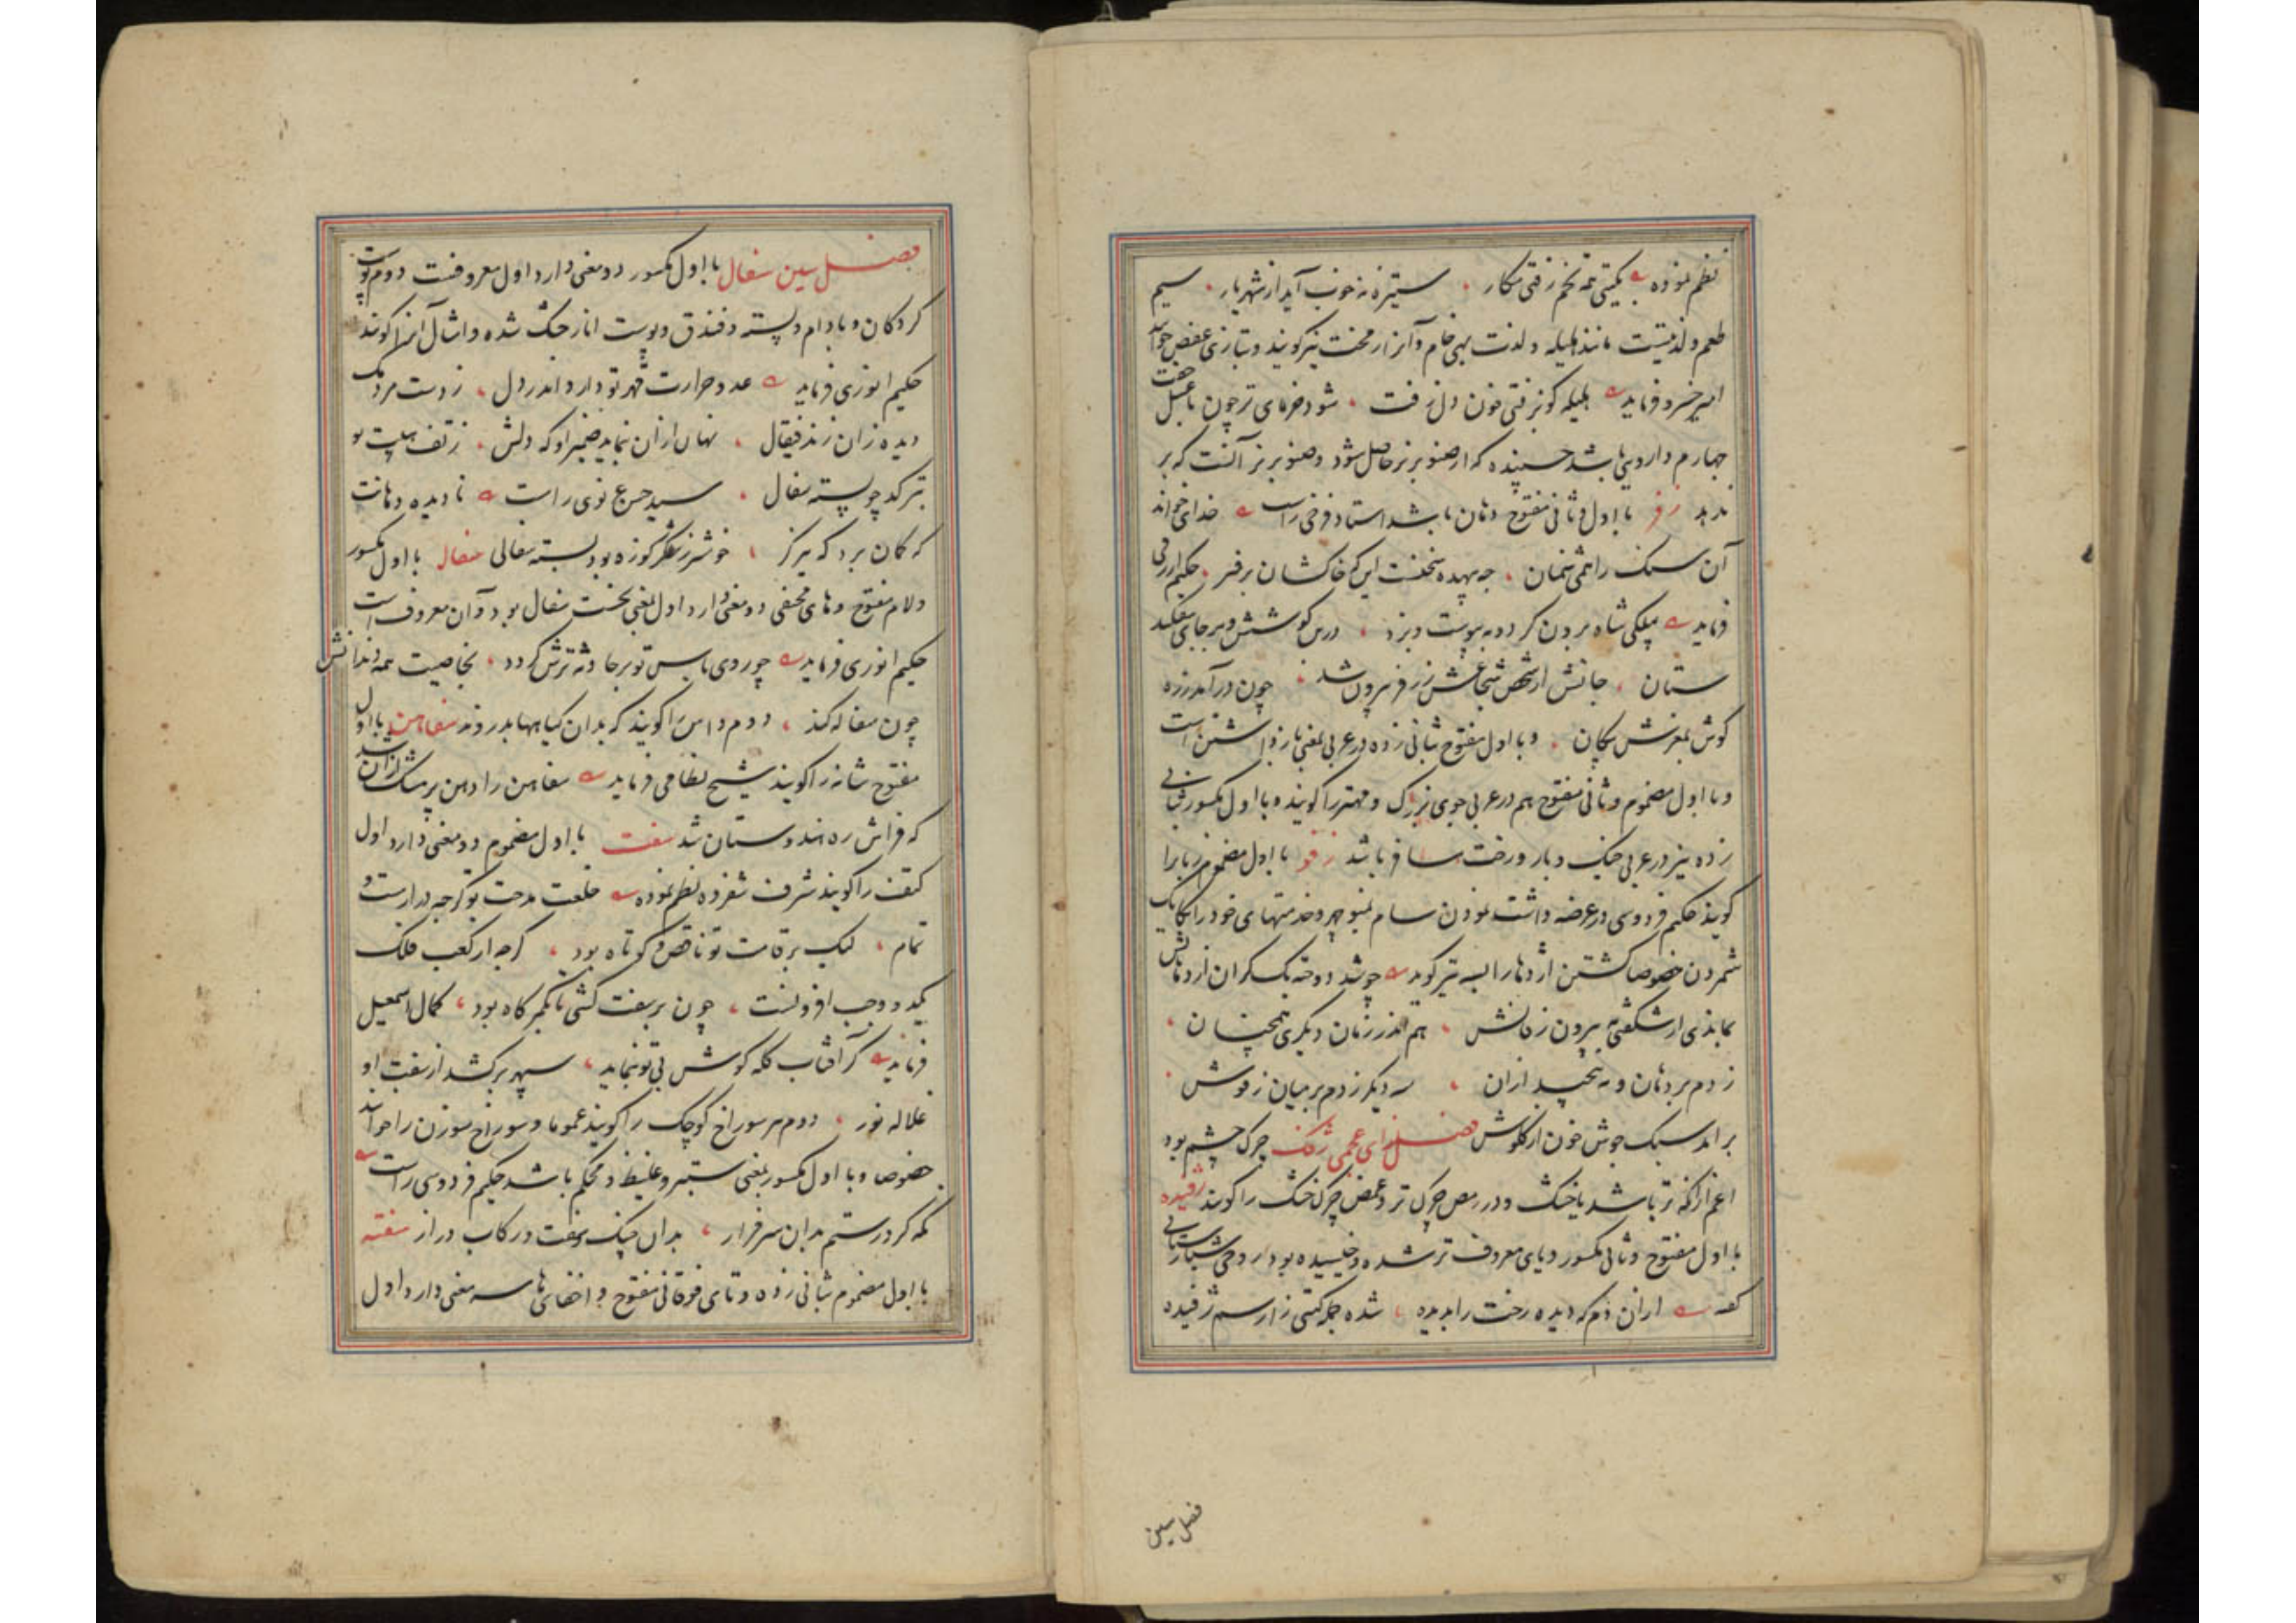 نظم نموده بگیتی همه تخم زفتی مکار ستیزه نه خوب آید از شهریار سیم
طعم و لذتیست مانند هلیله و لذت بهی خام و آنرا زمخت نیز گویند و بتازی عفص خوانند
امیر خسرو فرماید هلیله کو بزفتی خون دل رفت شود خرمای تر چون با عسل جفت
چهارم دارویی باشد چسپنده که از صنوبر نر حاصل شود و صنوبر نر آنست که بر
ندهد زفر با اول و ثانی مفتوح دهان باشد استاد فرخی راست خدای خواند
آن سنک را همی شمنان چه بیهده سخنست این که خاکشان بر زفر حکیم ازرقی
فرماید پیلکی شاه برون کرد و به پیوست و بزد درس کوشش و بر جای بیفکند
ستان جانش از شخص شجاعش ز زفر بیرون شد چون در آمد زره
کوش بمغزش پیکان و با اول مفتوح بثانی زده در عربی بمعنی بار برداشتن است
و با اول مضموم و ثانی مفتوح هم در عربی جوی بزرک و مهتر را کویند و با اول مکسور بثانی
زده نیز در عربی خیک و بار و رخت مسافر باشد زفو با اول مضموم زبان را
کویند حکیم فردوسی در عرضه داشت نمودن سام بمنوچهر و خدمتهای خود را یکایک
شمردن خصوصا کشتن اژدها را بسه تیر کوید چو شد دوخته یک کران از دهانش
بماندی از شکفتی به بیرون زبانش هم اندر زمان دیکری همچنان
زدم بر دهان و به پیچید ازان سه دیکر زدم بر میان زفوش
بر آمد سبک جوش خون از کلوش فصل زای عجمی ژفک چرک چشم بود
اعم از آنکه تر باشد یا خشک و در رمص چرک تر و غمص چرک خشک را کویند ژفیده
با اول مفتوح و ثانی مکسور و یای معروف تر شده و خیسیده بود
کفته ازان دم که دیده رخت را بدیده شده جمله کیتی ژفیده
فصل سین
فصل سین سفال با اول مکسور دو معنی دارد اول معروفست دوم پوست
کردکان و بادام و پسته و فندق و پوست انار خشک شده و امثال آنرا کویند
حکیم انوری فرماید عدو حرارت قهر تو دارد اندر دل ز دست مردمک
دیده زان زند قیفال نهان ازان ننماید ضمیر او که دلش ز تف هیبت تو
بترکد چو پسته سفال سید حسن غزنوی راست نادیده دهانت
که کمان برد که هرکز خوشتر ز شکر کوزه بود پسته سفالی سفاله با اول مکسور
و لام مفتوح و های مخفی دو معنی دارد اول بمعنی نخست سفال بود و آن معروف است
حکیم انوری فرماید چو روی باس تو بر حادثه ترش کردد بخاصیت همه دندانش
چون سفاله کند دوم داس را کویند که بدان کیاهها بدروند سفاهن با اول
مفتوح شانه را کویند شیخ نظامی فرماید سفاهن را دهن پر مشک ازان شد
که فراش ره هندوستان شد سفت با اول مضموم دو معنی دارد اول
کتف را کویند شرف شفروه نظم نموده خلعت مدحت تو کرچه دراز است و
تمام لیک بر قامت تو ناقص و کوتاه بود کرچه از کعب فلک
یکدو وجب افزونست چون بر سفت کشی تا بکمرکاه بود کمال اسمعیل
فرماید کر آفتاب کله کوشه بتو ننماید سپهر برکشد از سفت او
غلاله نور دوم هر سوراخ کوچک را کویند عموما و سوراخ سوزن را خوانند
خصوصا و با اول مکسور بمعنی ستبر و غلیظ و محکم باشد حکیم فردوسی راست
نکه کرد رستم بدان سرفراز بدان چنک و سفت و رکاب دراز سفته
با اول مضموم بثانی زده و تای فوقانی مفتوح و اخفای ها سه معنی دارد اول